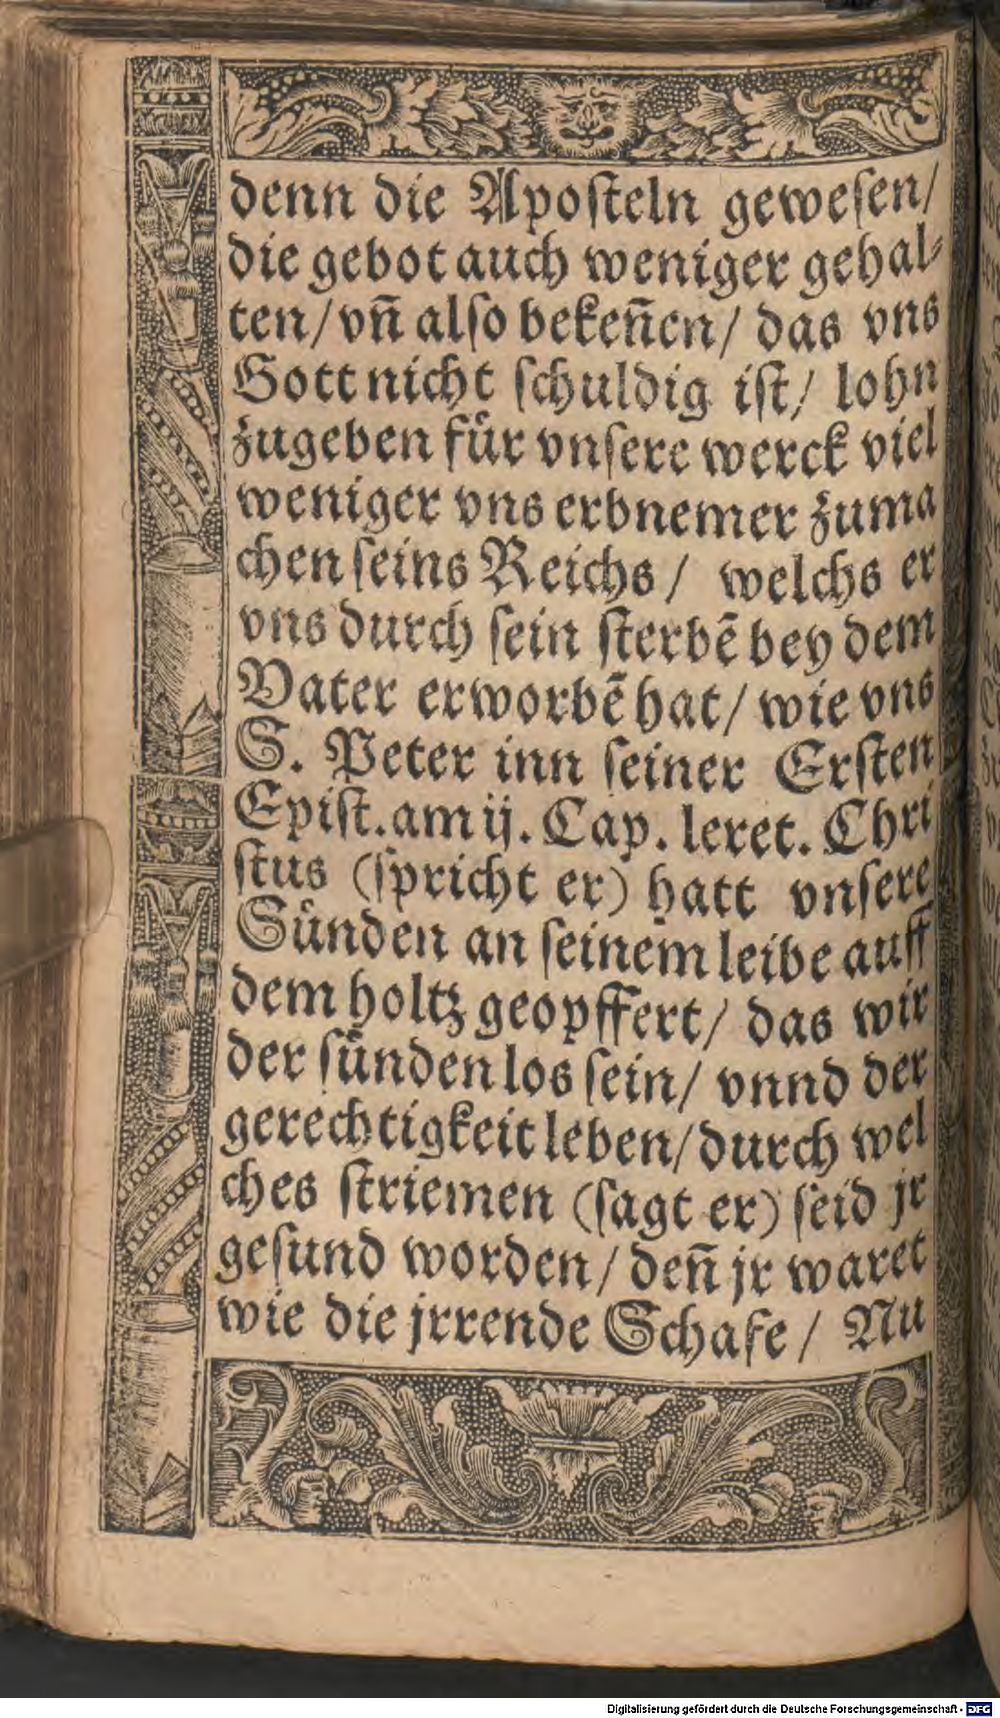 denn die Apoſteln geweſen/
die gebot auch weniger gehal⸗
ten/vn̄ alſo beken̄en/ das vns
Gott nicht ſchuldig iſt/ lohn
zugeben für vnſere werck viel
weniger vns erbnemer zuma
chen ſeins Reichs/ welchs er
vns durch ſein ſterbē bey dem
Vater erworbē hat/ wie vns
S. Peter inn ſeiner Erſten
Epiſt. am ij. Cap. leret. Chri
ſtus (ſpricht er) hatt vnſere
Sünden an ſeinem leibe auff
dem holtz geopffert/ das wir
der ſünden los ſein/ vnnd der
gerechtigkeit leben/durch wel
ches ſtriemen (ſagt er) ſeid jr
geſund worden/ den̄ jr waret
wie die jrrende Schafe/ Nu
Digitalisierung gefördert durch die Deutsche Forschungsgemeinschaft - DFG